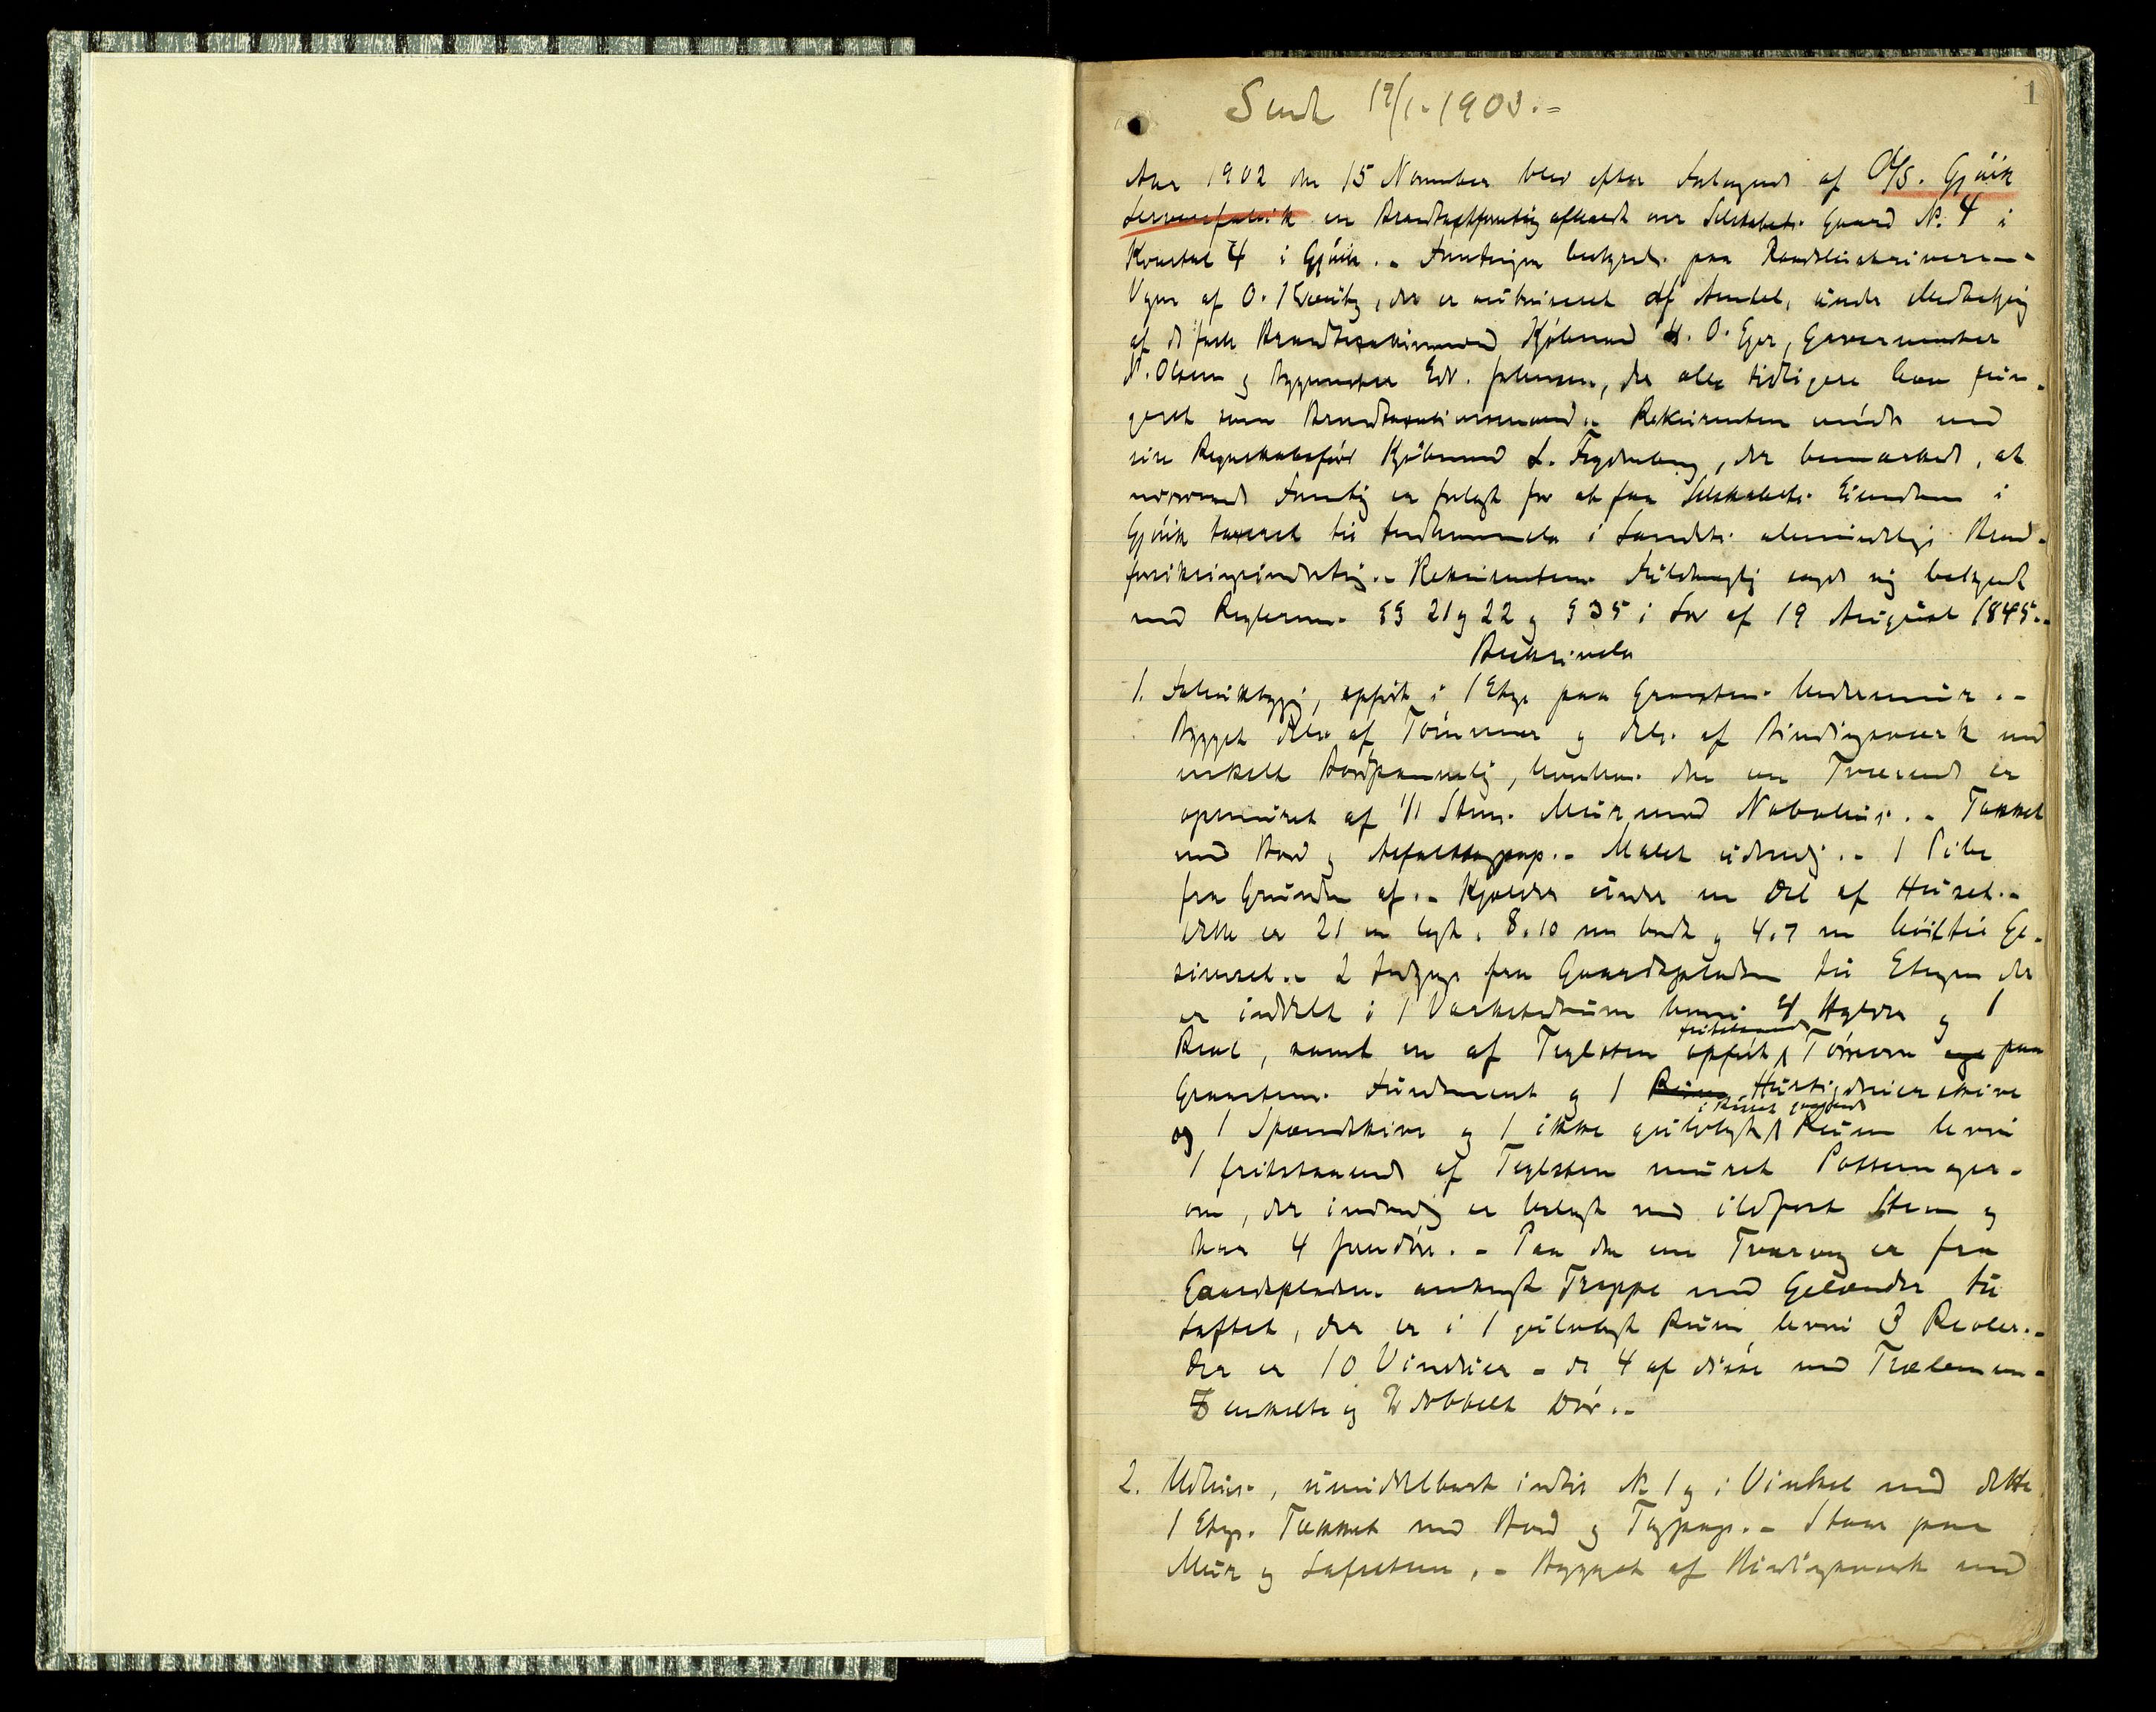 1
Sendt 17/1. 1903.=
Aar 1902 den 15 November blev efter Forlangende af A/S. Gjøvik
en Brandtaxtforretning afholdt over Selskabets Gaard No. 4 i
Kvartal 4 i Gjøvik.- Forretningen bestyredes paa Raadstueskriverens
Vegne af O. , der er autoriseret af Amtet, under Medvirkning
af de faste Brandtaxationsmænd Kjøbmand H. O. Eger, Garvermester
P. Olsen og Bygmester Edv. Johansen, der alle tidligere have fun-
geret som Brandtaxationsmænd.- Rekvirenten mødte ved
sin Regnskabsfører Kjøbmand L. , der bemærkede, at
nærværende Forretning er forlangt for at faa Selskabets Eiendom i
Gjøvik taxeret til Indlemmelse i Landets almindelige Brand-
forsikringsindretning.- Rekvirentens Fuldmægtig sagde sig bekjendt
med Reglerne i §§ 21 og 22 og § 35 i Lov af 19 August 1845.-
Beskrivelse
1. Fabrikbygning, opført i 1 Etage paa Graastens Undermur.-
Bygget dels af Tømmer og dels af Bindingsværk med
enkelt Bordpanneling, hvorhos den ene Tværende er
opmuret af 1/1 Stens Mur mod Nabohus.- Tækket
med Bord og Asfalttagpap.- Malet udvendig.- 1 Pibe
fra Grunden af.- Kjælder under en Del af Huset.-
Dette er 21 m langt, 8.10 m bredt og 4.7 m høit til Ge-
simsen.- 2 Indgange fra Gaardspladsen til Etagen der
er inddelt i 1 Værkstedsrum hvori 4 Hylder og 1
Reol, samt en af Teglsten opført fritstaaende Tørreovn paa
Graastens Fundament og 1 Hurtigdreierskive
og 1 Spændskive og 1 ikke gulvlagt Rum hvori
1 fritstaaende af Teglsten muret Pottemager-
ovn, der indvendig er belagt med ildfast Sten og
har 4 Jerndøre.- Paa den ene Tværvæg er fra
Gaardspladsen anbragt Trappe med Gelænder til
Loftet, der er i 1 gulvlagt Rum hvori 3 Reoler.-
Der er 10 Vinduer - de 4 af disse med Trælemmer-
enkelte og 2 dobbelt Dør.-
2. Udhus, umiddelbart indtil No 1 og i Vinkel med dette
1 Etage. Tækket med Bord og Tagpap.- Staar paa
Mur og .- Bygget af Bindingsværk med